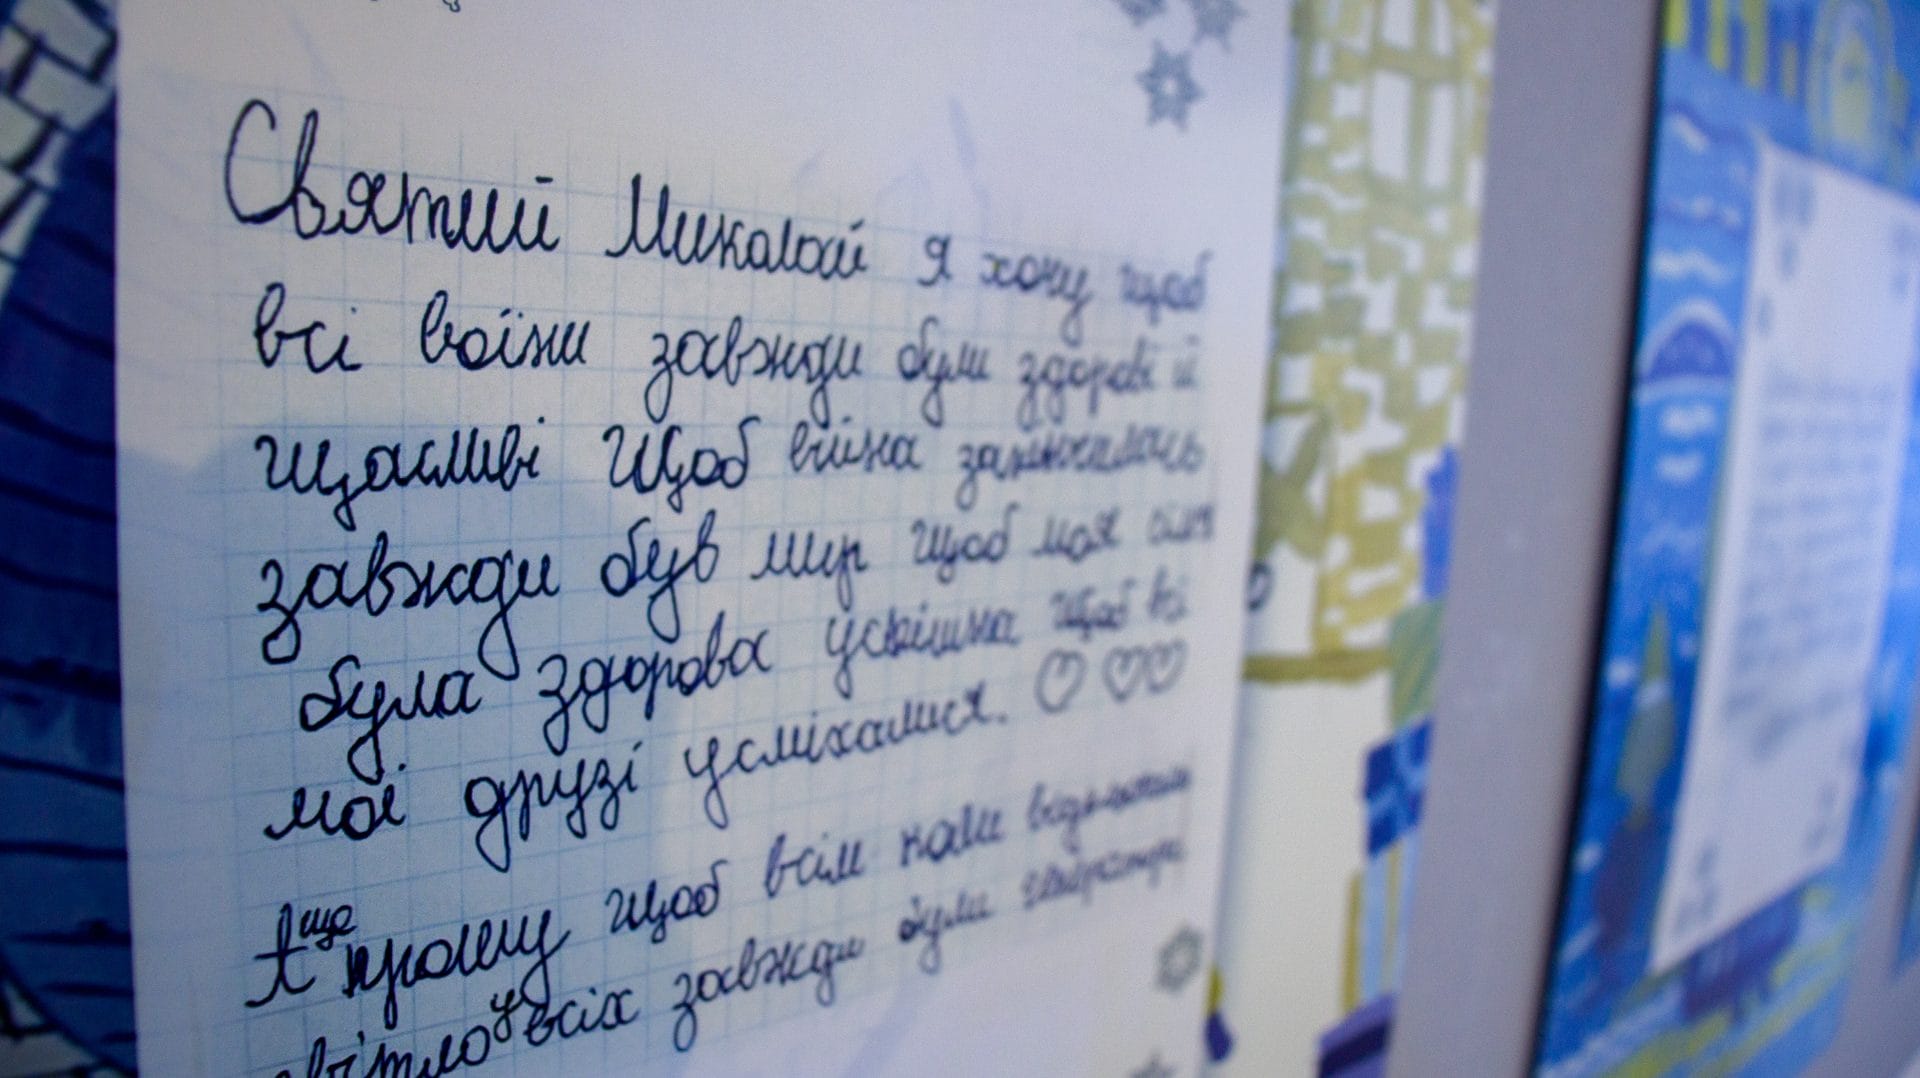 Святий Миколай я хочу щоб
всі воїни завжди були здорові й
щасливі Щоб війна закінчилась
завжди був мир щоб моя сім'я
була здорова успішна щоб всі
мої друзі усміхалися.
А ще прошу щоб всім нам відключили
світло у всіх завжди були